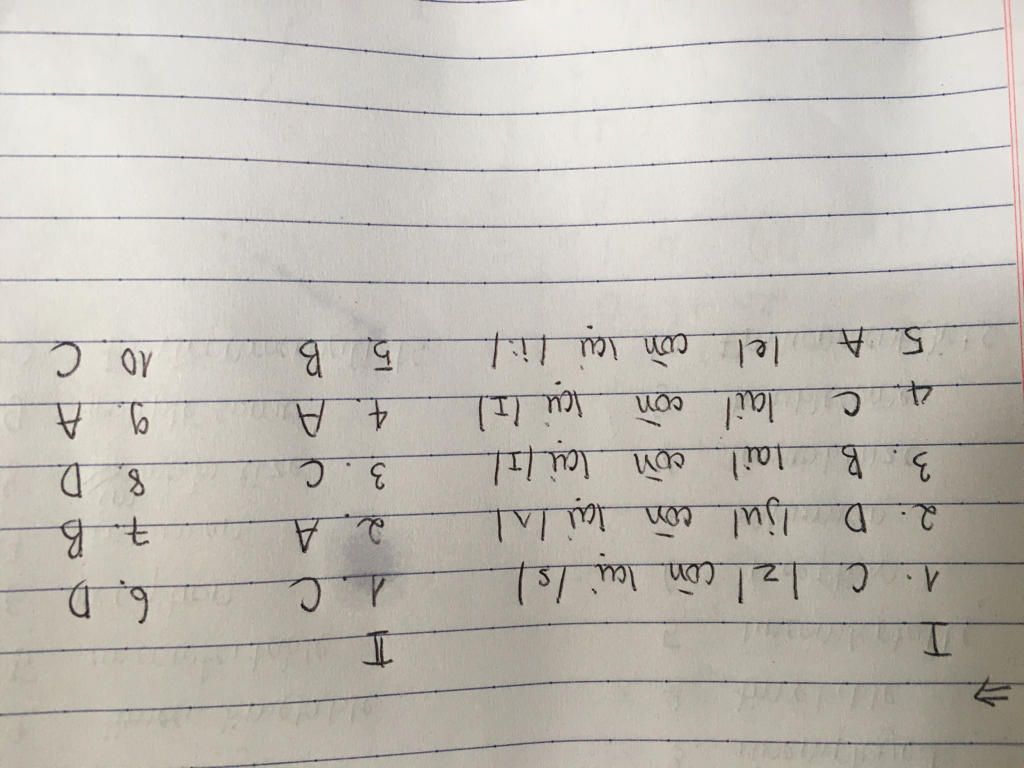 ⇒
I II
1. C /z/ còn lại /s/ 1. C 6. D
2. D /ju/ còn lại /ʌ/ 2. A 7. B
3. B /ai/ còn lại /I/ 3. C 8. D
4. C /ai/ còn lại /I/ 4. A 9. A
5. A /e/ còn lại /i:/ 5. B 10. C